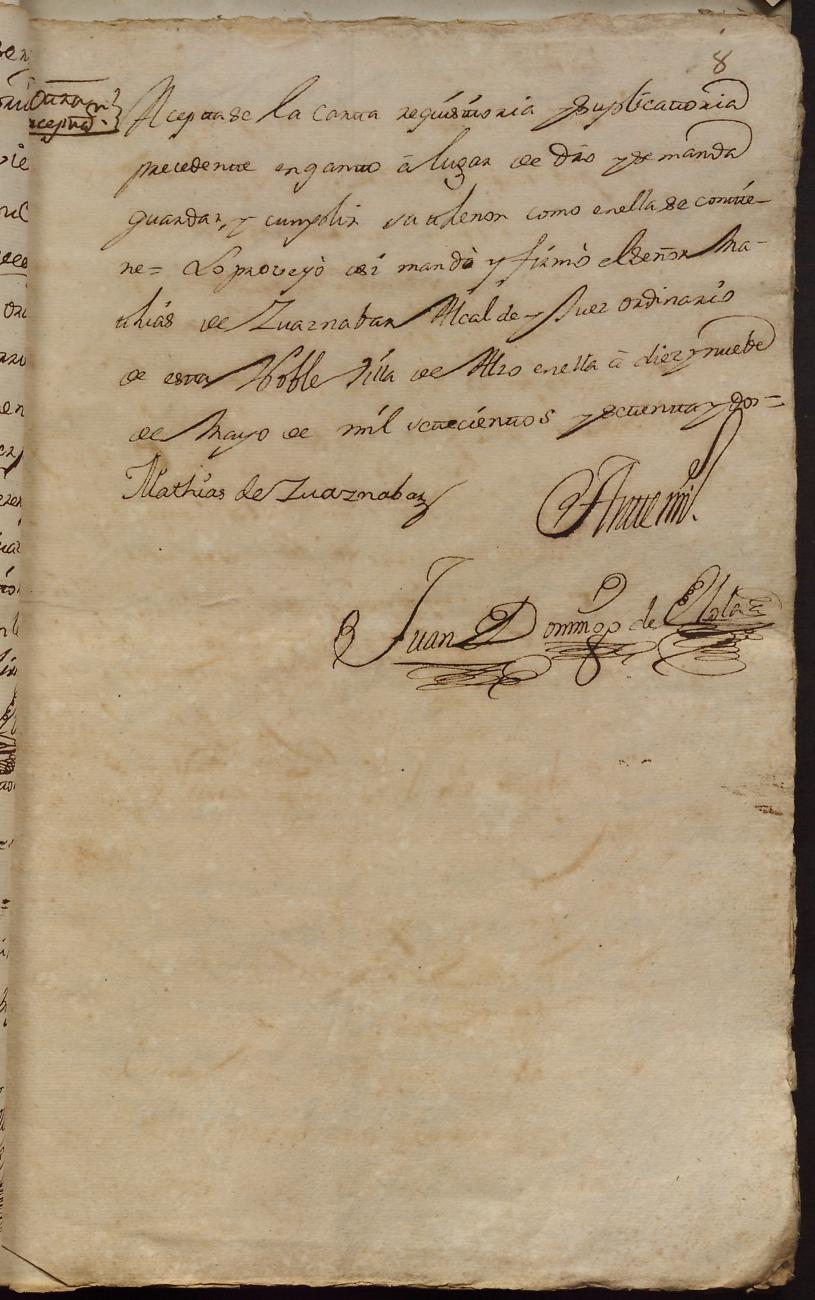 8
Otra
acepta.n
Aceptase la carta requisitoria y suplicatoria
precedente enquanto â lugar de dr̃o y se manda
guardar, y cumplir su thenor como enella se contie-
ne= Lo proveyò asi mandò y firmò el señor Ma-
thias de Zuaznabar Alcalde y Juez ordinario
de esta Noble Villa de Alzo enella â diez y nuebe
de Mayo de mil setecientos y setenta y dos=
Mathias de Zuaznabar
Ante mi
Juan Domingo de